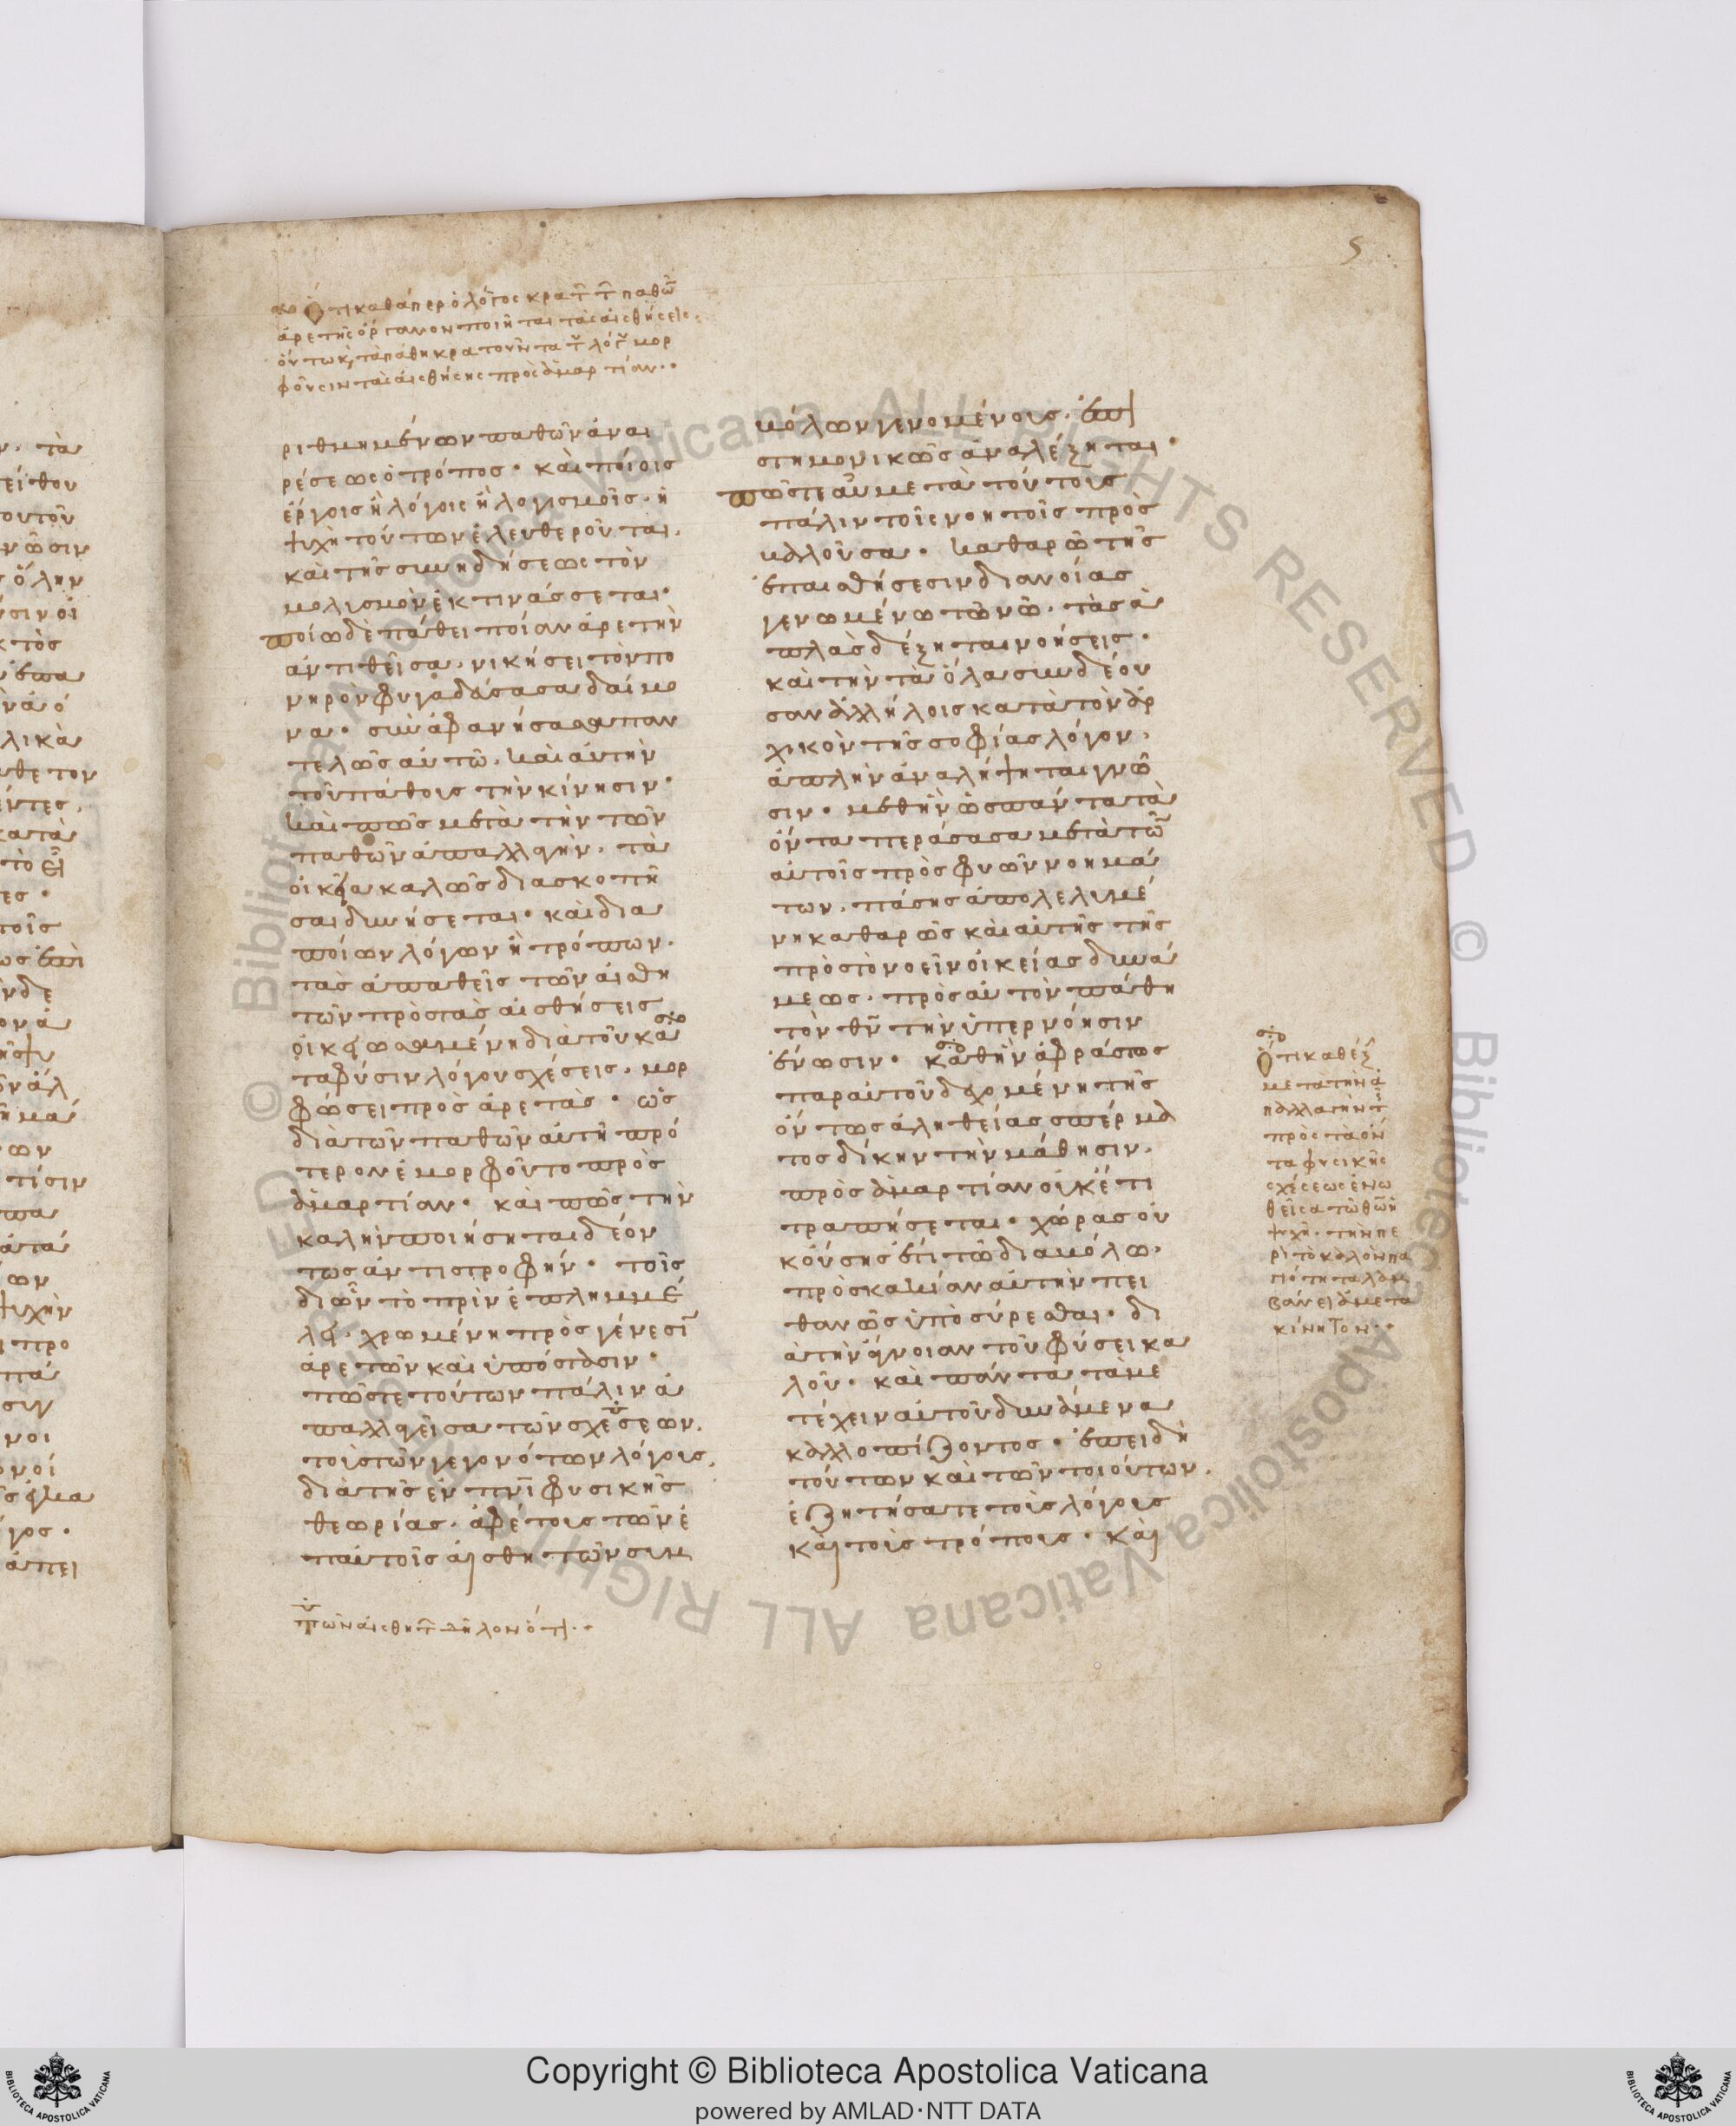 5
Ὅτι καθάπερ ὁ λόγος κρατ τ παθῶ
ἀρετῆς ὄργανον ποιῆται τὰς αἰσθήσεις
οὕτω κ τὰ πάθη κρατοῦντα τ λόγ μορ
φοῦσιν τὰς αἰσθήσης πρὸς ἁμαρτίαν··
ριθμημένων παθῶν ἀναι
ρέσεως ὁ τρόπος· καὶ ποίοις
ἔργοις ἢ λόγοις ἢ λογισμοῖς· ἡ
ψυχὴ τούτων ἐλευθεροῦται,
καὶ τῆς συνηδήσεως τὸν
μολισμὸν ἐκτινάσσεται·
ποίω δὲ πάθει ποίαν ἀρετὴν
ἀντιθεῖσα, νικήσει τὸν πο
νηρὸν φυγαδεύσασα δαίμο
να· συναφανήσασα παν
τελῶς αὐτῶ, καὶ αὐτὴν
τοῦ πάθους τὴν κίνησιν·
καὶ πῶς μετὰ τὴν τῶν
παθῶν ἀπαλλαγὴν, τὰ
οἰκεῖα καλῶς διασκοπῆ
σαι δυνήσεται· καὶ δια
ποίων λόγων ἢ τρόπων.
τὰς ἀπαθεῖς τῶν αἰσθη
τῶν πρὸς τὰς αἰσθήσεις
οἰκειωσαμένη διὰ τοῦ κα
τα φύσιν λόγου σχέσεις, μορ
φώσει πρὸς ἀρετὰς· ὡς
διὰ τῶν παθῶν αὐτῆ πρό
τερον ἐμορφοῦντο πρὸς
ἁμαρτίαν· καὶ πῶς τὴν
καλὴν ποιήσηται δεόν
τως ἀντιστροφήν· τοῖς
δι ὧν τὸ πρὶν ἐπλημμέ
λει, χρωμένη πρὸς γένεσῖ
ἀρετῶν καὶ ὑπόστασιν·
πῶς τε τούτων πάλιν ἀ
παλλαγεῖσα τῶν σχέσεων,
τοὺς τῶν γεγονότων λόγους,
διὰ τῆς ἐν πνι φυσικῆς
θεωρίας, ἀφέτους τῶν ἐ
π αὐτοῖς αἰσθητῶν συμ
τῶν αἰσθητ δηλονότι··
μόλων γενομένους, ἐπι
στημονικῶς ἀναλέξηται·
πῶς τε αὖ μετὰ τούτους
πάλιν τοῖς νοητοῖς προσ
βαλοῦσα· καθαρῶ τῆς
ἐπαισθήσεσιν διανοίας
γενωμένω τῶ νῶ, τὰς ἁ
πλὰς δέξηται νοήσεις·
καὶ τὴν τὰ ὅλα συνδέου
σαν ἀλλήλοις κατὰ τὸν ἀρ
χικὸν τῆς σοφίας λόγον,
ἁπλὴν ἀναλήψηται γνῶ
σιν· μεθ ἣν ὡς πάντα τὰ
ὄντα περάσασα μετὰ τῶ
αὐτοῖς προσφυῶν νοημά
των, πάσης ἀπολελυμέ
νη καθαρῶς καὶ αὐτῆς τῆς
πρὸς τὸ νοεῖν οἰκείας δυνά
μεως, πρὸς αὐτὸν πάθη
τὸν θν τὴν ὑπερ νόησιν
ἕνωσιν· καθ ἣν ἀφράστως
παρ αὐτοῦ δεχομένη τῆς
ὄντως ἀληθείας σπέρμα
τος δίκην τὴν μάθησιν,
πρὸς ἁμαρτίαν οὐκέτι
τραπήσεται· χώρας οὐ
κούσης ἔτι τῶ διαμόλω,
πρὸς κακίαν αὐτὴν πει
θανῶς ὑποσύρεσθαι· δι
ὰ τὴν ἄγνοιαν τοῦ φύσει κα
λοῦ· καὶ πάντα τὰ με
τέχειν αὐτοῦ δυνάμενα
καλλοπίζοντος· ἐπειδὴ
τούτων καὶ τῶν τοιούτων,
ἐζητήσατε τοὺς λόγους
καὶ τοὺς τρόπους· καὶ
Ὅτι καθέξ
μετὰ τὴν ἀ
παλλαγὴν τ
πρὸς τὰ ὄν
τα φυσικῆς
σχέσεως ἑνω
θεῖσα τῶ θῶ ἡ
ψυχὴ· τὴν πε
ρὶ τὸ καλὸν πα
γιότητα λαμ
βάνει ἀμετα
κίνητον··
Copyright © Biblioteca Apostolica Vaticana
powered by AMLAD·NTT DATA